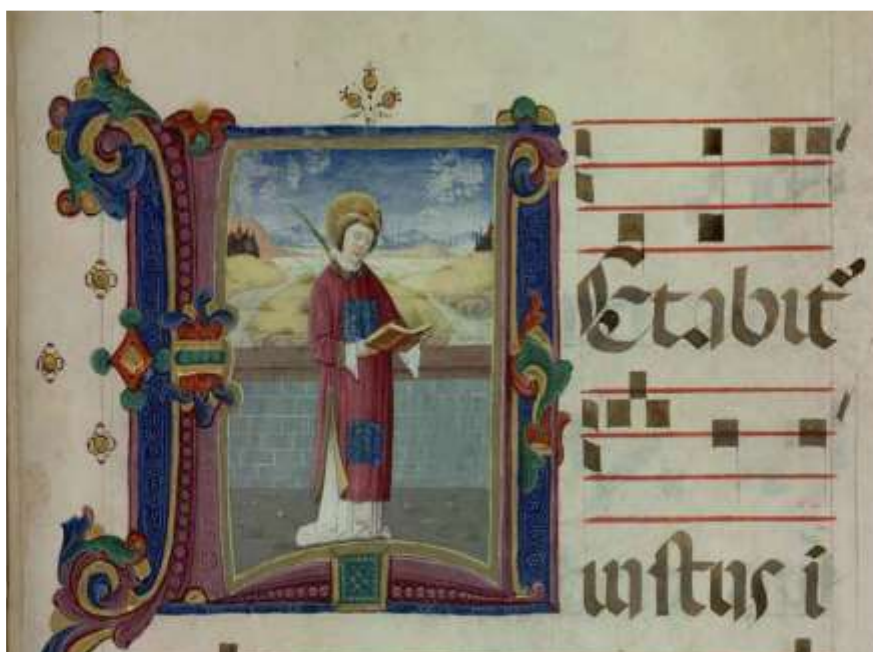 LEtabit᷑
iuſtus i